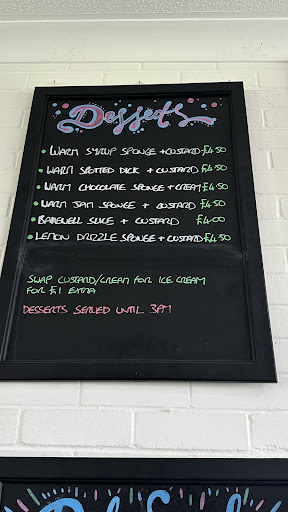 Desserts
• WARM SYRUP SPONGE + CUSTARD £4.50
• WARM SPOTTED DICK + CUSTARD £4.50
• WARM CHOCOLATE SPONGE + CREAM £4.50
• WARM JAM SPONGE + CUSTARD £4.50
• BAKEWELL SLICE + CUSTARD £4.00
• LEMON DRIZZLE SPONGE + CUSTARD £4.50
SWAP CUSTARD/CREAM FOR ICE CREAM
FOR £1 EXTRA
DESSERTS SERVED UNTIL 3PM